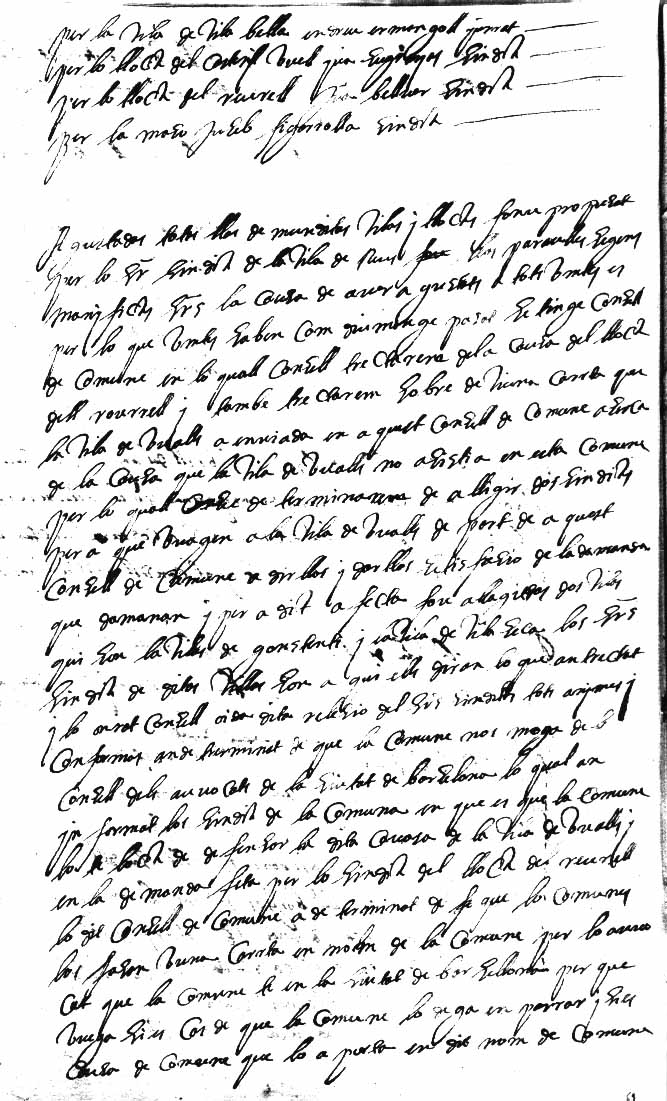 per la vila de vila bella andreu armengoll jurat
per lo lloch del Castell vuell juan sindich
per lo lloch del rourell juan bellver sindich
per la maso jusep figerolla sindich
Agustades totes lles demundites viles y llochs fonc proposat
per lo Sr sindich de la vila de Reus les paraulles seguens
manifichs Srs la causa de aver agustats a tots vmes es
per lo que vmes saben com diumenge pasat se tinge Consell
de Comune en lo quall Consell trectarem dela causa del lloch
dell rourrell y tambe trectarem sobre de huna Carta que
la vila de Vualls a enviada en aquest Consell de Comune aserca
de la Causa que la vila de Vualls no asistia en esta Comune
per lo quall determinarem de alligir dos sindichs
per a que vuagen a la vila de Vualls de part de aquest
Consell de Comune a dirllos y darllos setisfasio de la demanda
que demanan y per a dit afecte fore allegides dos viles
qui son la vila de gonstenti y la vila de vila seca los Srs
sindich de dites villes son a qui ells diran lo que an trectat
y lo onrat Consell oida dita relesio del Srs sindichs tots anjmes y
Conformes an determinat de que la Comune nos moga de b
Consell dels auvocats de la siutat de barselona lo qual an
jnformat los sindich de la Comuna en que es que la Comune
los te lloch de defensor la dita Causa de la vila de Vualls y
en la demanda feta per lo sindich del lloch del rourell
lo dit Consell de Comune a determinat de se que los Comunes
los fasen vuna Carta en nom de la Comune per lo auvo
cat que la Comune te en la siutat de barsellona per que
vuega si es Cas de que la Comune lo dega enparrar y si es
Causa de Comune que lo aporta en dit nom de Comune